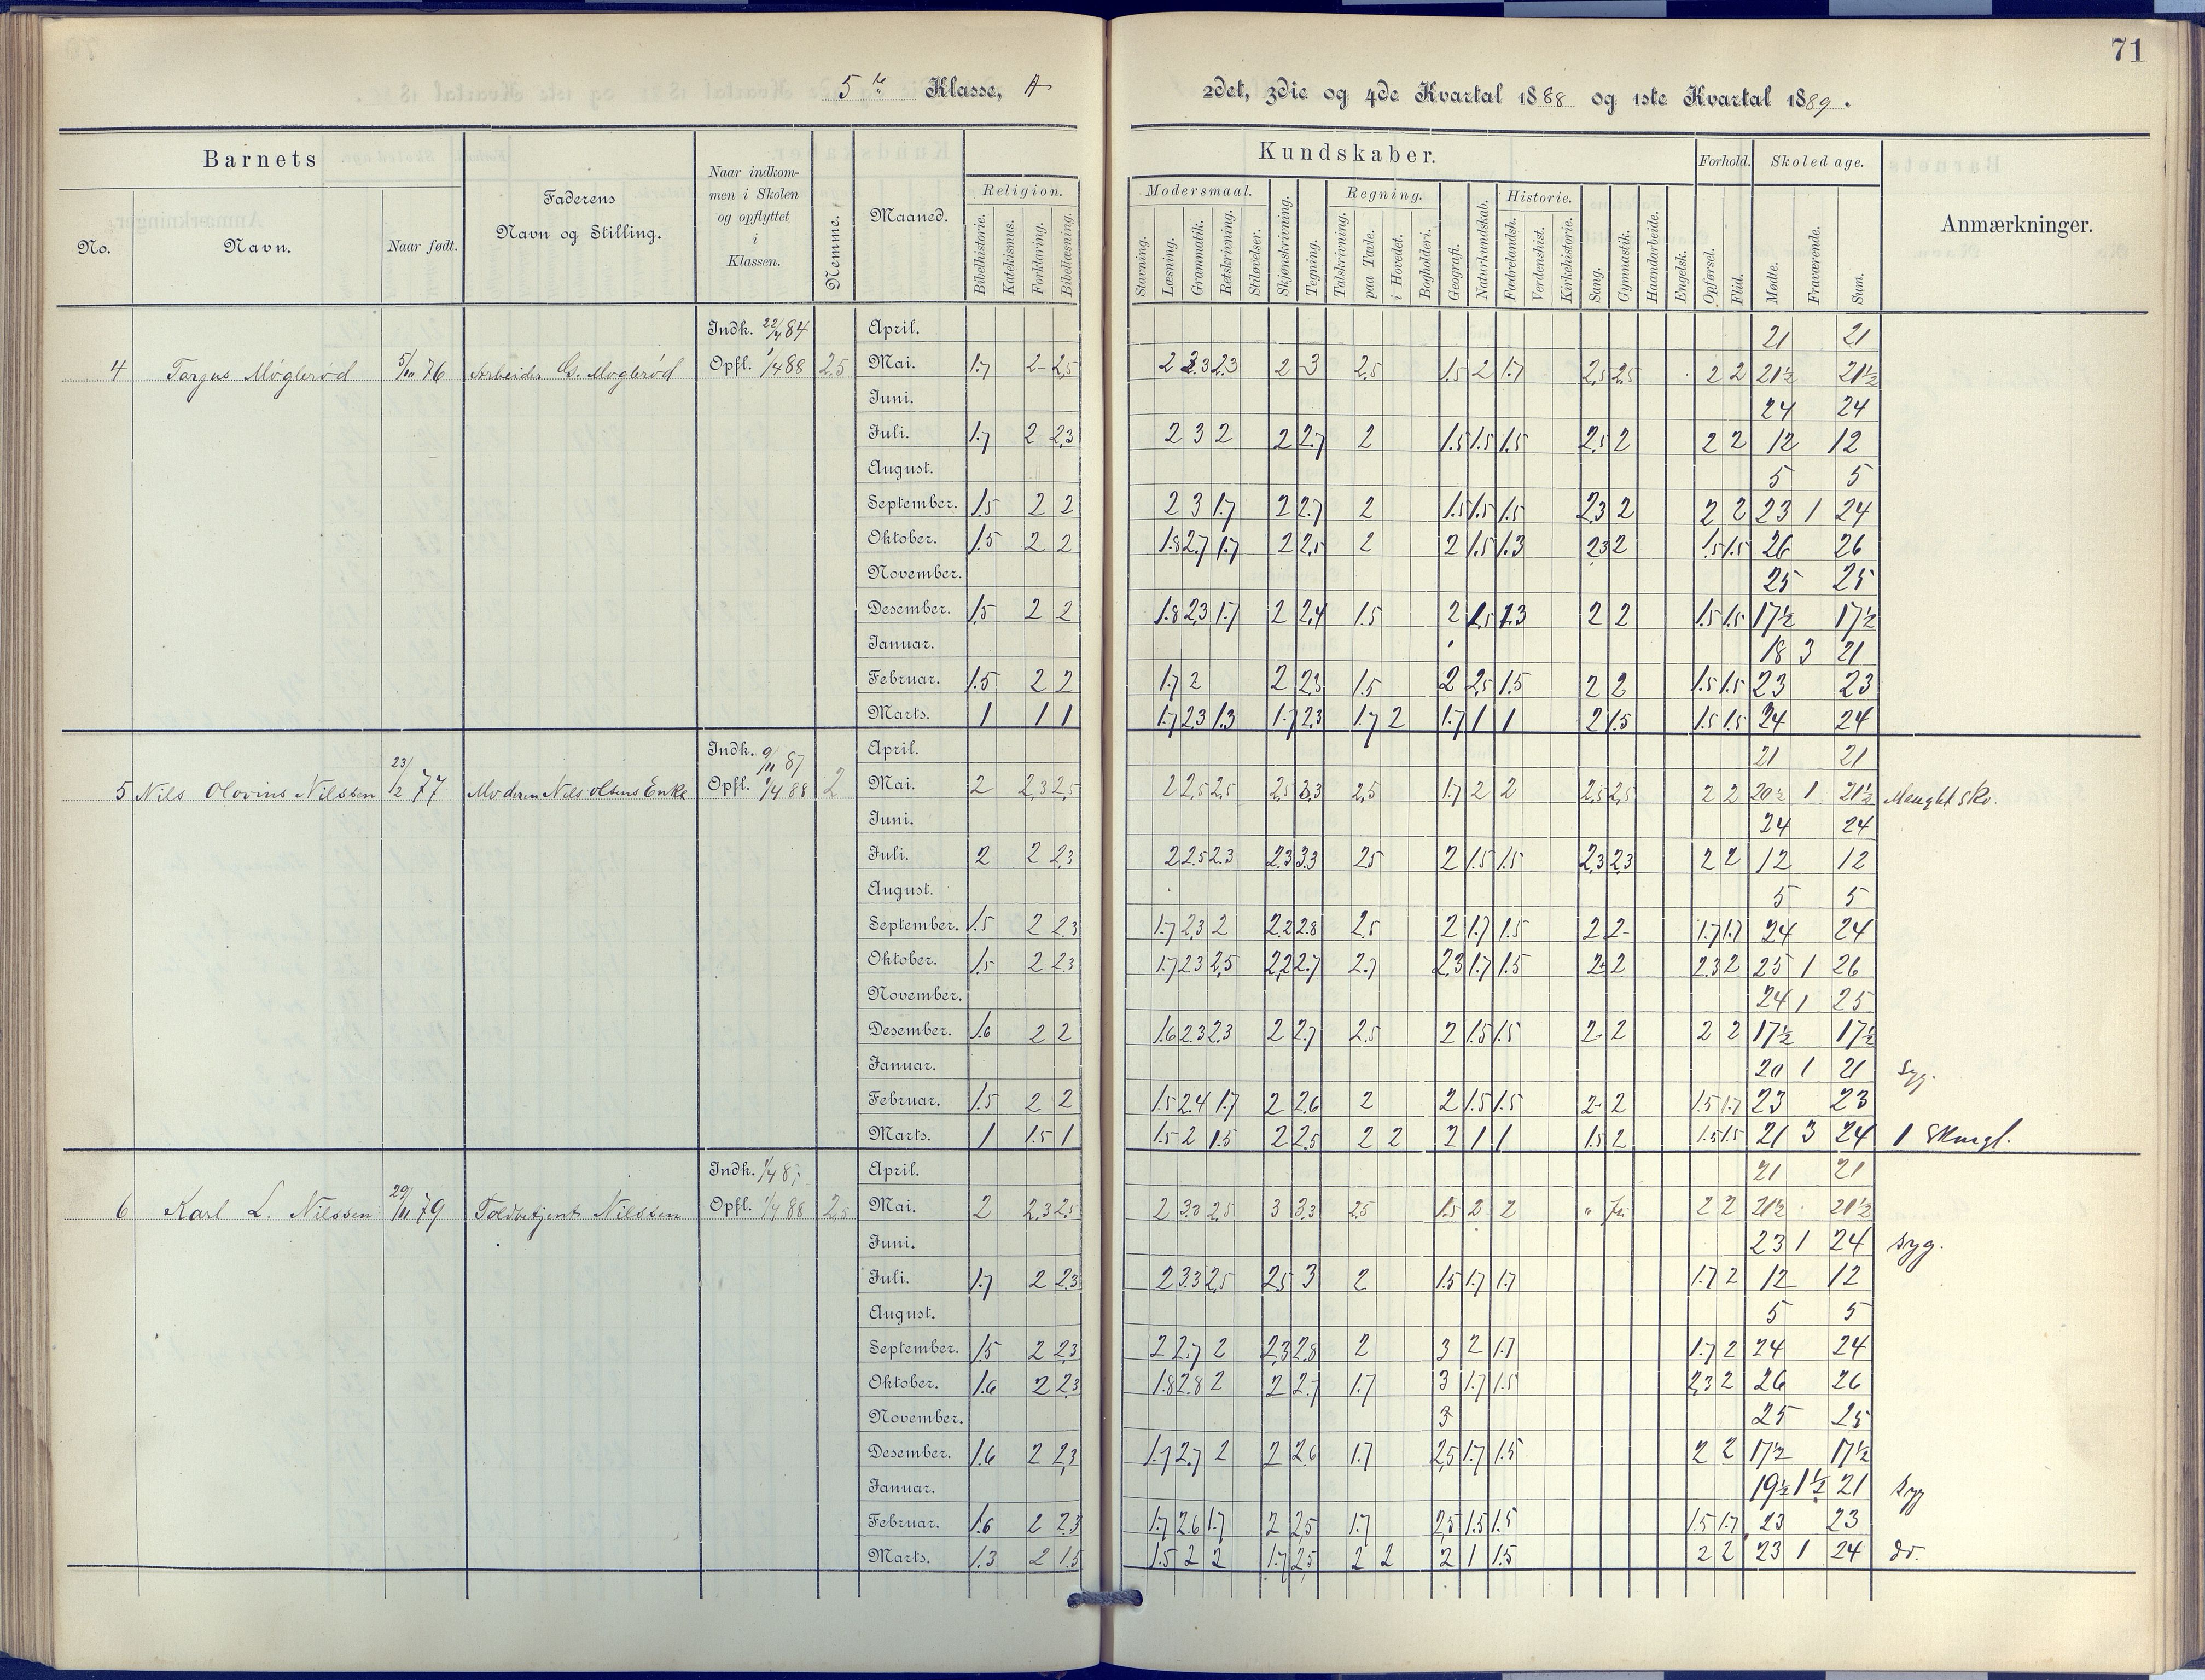 71
5te Klasse, A
2det, 3die og 4de Kvartal 1888 og 1ste Kvartal 1889.
Barnets
No.
Navn.
Naar født.
Faderens
Navn og Stilling.
Naar indkom-
men i Skolen
og opflyttet
i
Klassen.
Nemme.
Maaned.
Kundskaber.
Religion.
Bibelhistorie.
Katekismus.
Forklaring.
Bibellæsning.
Modersmaal.
Stavning.
Læsning.
Grammatik.
Retskrivning.
Stiløvelser.
Skjønskrivning.
Tegning.
Regning.
Talskrivning.
paa Tavle.
i Hovedet.
Bogholderi.
Geografi.
Naturkundskab.
Historie.
Fædrelandsh.
Verdenshist.
Kirkehistorie.
Sang.
Gymnastik.
Haandarbeide.
Engelsk.
Forhold.
Opførsel.
Flid.
Skoledage.
Mødte.
Fraværende.
Sum.
Anmærkninger.
Indk. 22/4 84 April. 21 21
4 Tarjus Møglerød 5/10 76 Arbeider G. Møglerød Opfl. 1/4 88 2,5 Mai. 1.7 2 2,5 2 2.3 2.3 2 3 2,5 1.5 2 1.7 2,5 2,5 2 2 21½ 21½
Juni. 24 24
Juli. 1.7 2 2,3 2 3 2 2 2.7 2 1.5 1.5 1.5 2,5 2 2 2 12 12
August. 5 5
September. 1.5 2 2 2 3 1.7 2 2.7 2 1.5 1.5 1.5 2,3 2 2 2 23 1 24
Oktober. 1.5 2 2 1.8 2.7 1.7 2 2,5 2 2 1.5 1.3 2,3 2 1.5 1.5 26 26
November. 25 25
Desember. 1.5 2 2 1.8 2,3 1.7 2 2,4 1.5 2 1.5 1.3 2 2 1.5 1.5 17½ 17½
Januar. 18 3 21
Februar. 1.5 2 2 1.7 2 2 2,3 1.5 2 2,5 1.5 2 2 1.5 1.5 23 23
Marts. 1 1 1 1.7 2,3 1.3 1.7 2,3 1.7 2 1.7 1 1 2 1.5 1.5 1.5 24 24
Indk. 9/11 87 April. 21 21
5 Nils Olovius Nilssen 23/2 77 Moderen Nils Olsens Enke Opfl. 1/4 88 2 Mai. 2 2,3 2,5 2 2,5 2,5 2,5 3,3 2,5 1.7 2 2 2,5 2,5 2 2 20½ 1 21½ Manglet sko.
Juni. 24 24
Juli. 2 2 2,3 2 2.5 2.3 2.3 3.3 2,5 2 1.5 1.5 2,3 2,3 2 2 12 12
August. 5 5
September. 1.5 2 2,3 1.7 2,3 2 2.2 2.8 2,5 2 1.7 1.5 2 2 1.7 1.7 24 24
Oktober. 1.5 2 2,3 1.7 2,3 2,5 2,2 2.7 2.7 2,3 1.7 1.5 2 2 2,3 2 25 1 26
November. 24 1 25
Desember. 1.6 2 2 1.6 2.3 2.3 2 2.7 2,5 2 1.5 1.5 2 2 2 2 17½ 17½
Januar. 20 1 21 Syg.
Februar. 1.5 2 2 1.5 2.4 1.7 2 2.6 2 2 1.5 1.5 2 2 1.5 1.7 23 23
Marts. 1 1.5 1 1.5 2 1.5 2 2,5 2 2 2 1 1 1.5 2 1.5 1.5 21 3 24 1 Skmgl.
Indk. April. 21 21
6 Karl L. Nilssen 29/11 79 Toldbetjent Nilssen Opfl. 1/4 88 2,5 Mai. 2 2,3 2,5 2 3.3 2,5 3 3,3 2,5 1.5 2 2 " fri 2 2 21½ 21½
Juni. 23 1 24 Syg.
Juli. 1.7 2 2,3 2 3.3 2,5 2,5 3 2 1.5 1.7 1.7 1.7 2 12 12
August. 5 5
September. 1.5 2 2,3 2 2.7 2 2,3 2.8 2 3 2 1.7 1.7 2 24 24
Oktober. 1.6 2 2,3 1.8 2.8 2 2 2.7 1.7 3 1.7 1.5 2,3 2 26 26
November. 3 25 25
Desember. 1.6 2 2,3 1.7 2.7 2 2 2.6 1.7 2,5 1.7 1.5 2 2 17½ 17½
Januar. 19½ 1½ 21 Syg
Februar. 1.6 2 2.3 1.7 2.6 1.7 2 2,5 1.7 2,5 1.5 1.5 1.5 1.7 23 23
Marts. 1.3 2 1.5 1.5 2 2 1.7 2,5 2 2 2 1 1.5 2 2 23 1 24 do.